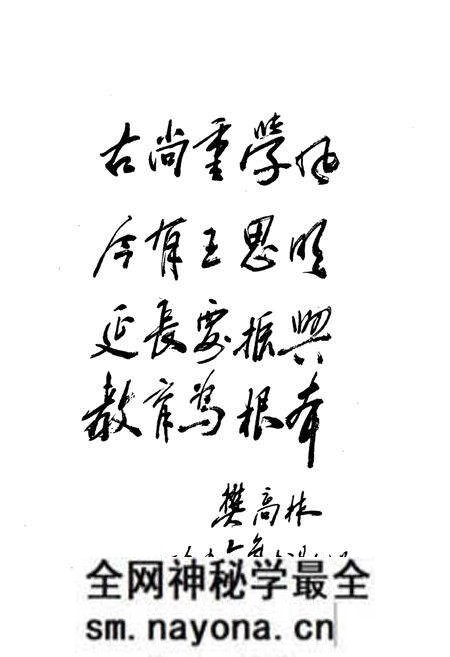 古尚重學風
今有王思明
延長要振興
教育為根本
樊高林
全网神秘学最全
sm.nayona.cn